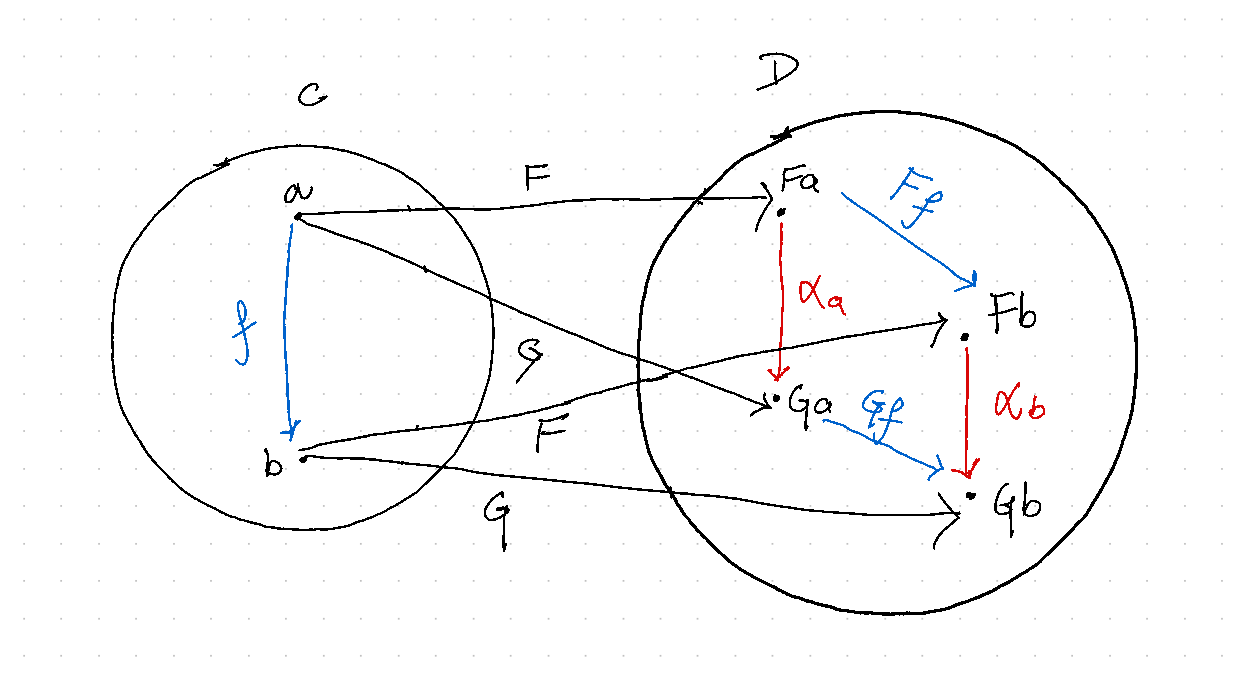 C
D
a
F
Fa
Ff
f
αa
Fb
G
Ga
Gf
αb
F
b
G
Gb